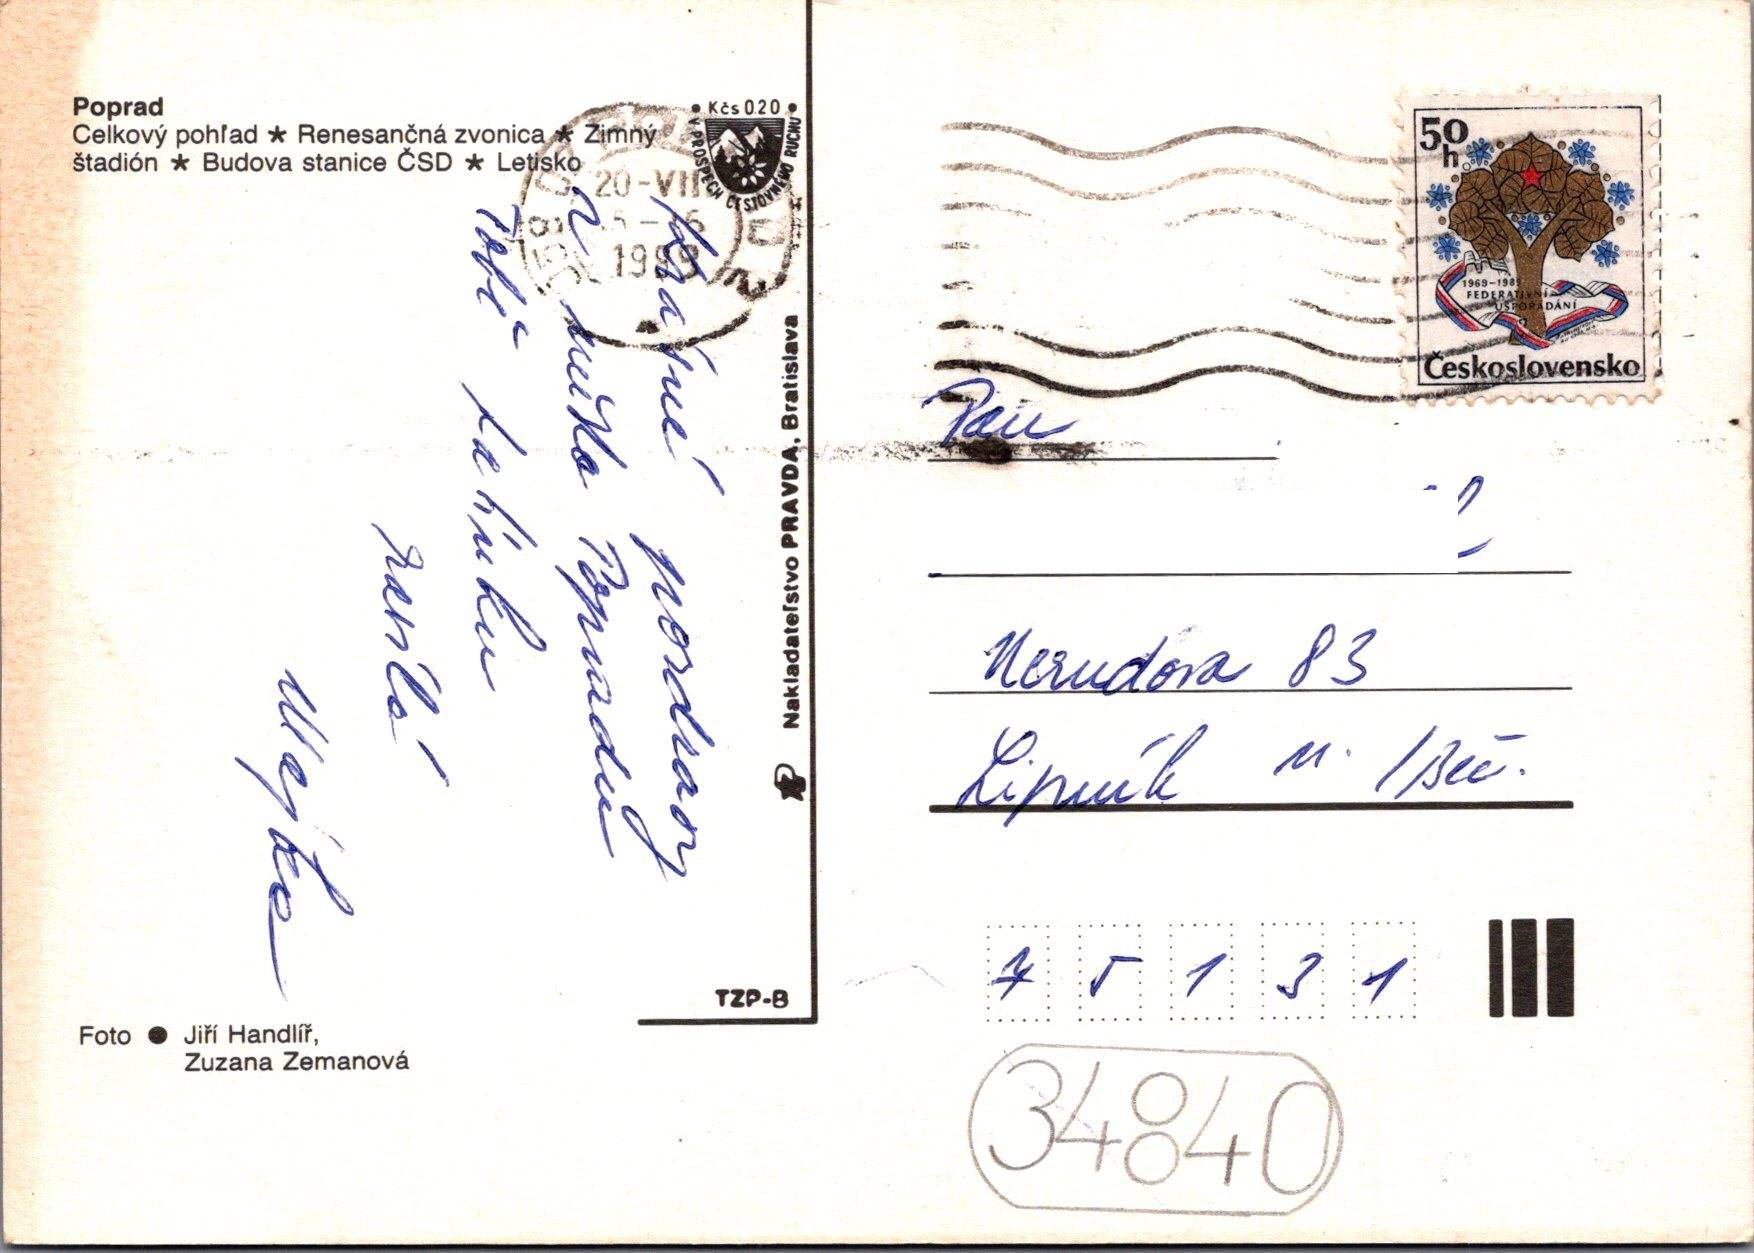 Poprad
Celkový pohľad ★ Renesančná zvonica ★ Zimný
štadión ★ Budova stanice ČSD ★ Letisko
• Kčs 020 •
V PROSPECH CESTOVNÉHO RUCHU
20-VII
1989
Krásné pozdravy
z mírka Popradu
Tobě
zasílá
Majka
Nakladateľstvo PRAVDA, Bratislava
TZP-B
Foto ● Jiří Handlíř,
Zuzana Zemanová
50
h
1969-1989
FEDERATIVNÍ
USPOŘÁDÁNÍ
Československo
Pan
Nerudova 83
Lipník n. /Beč.
7 5 1 3 1
34840